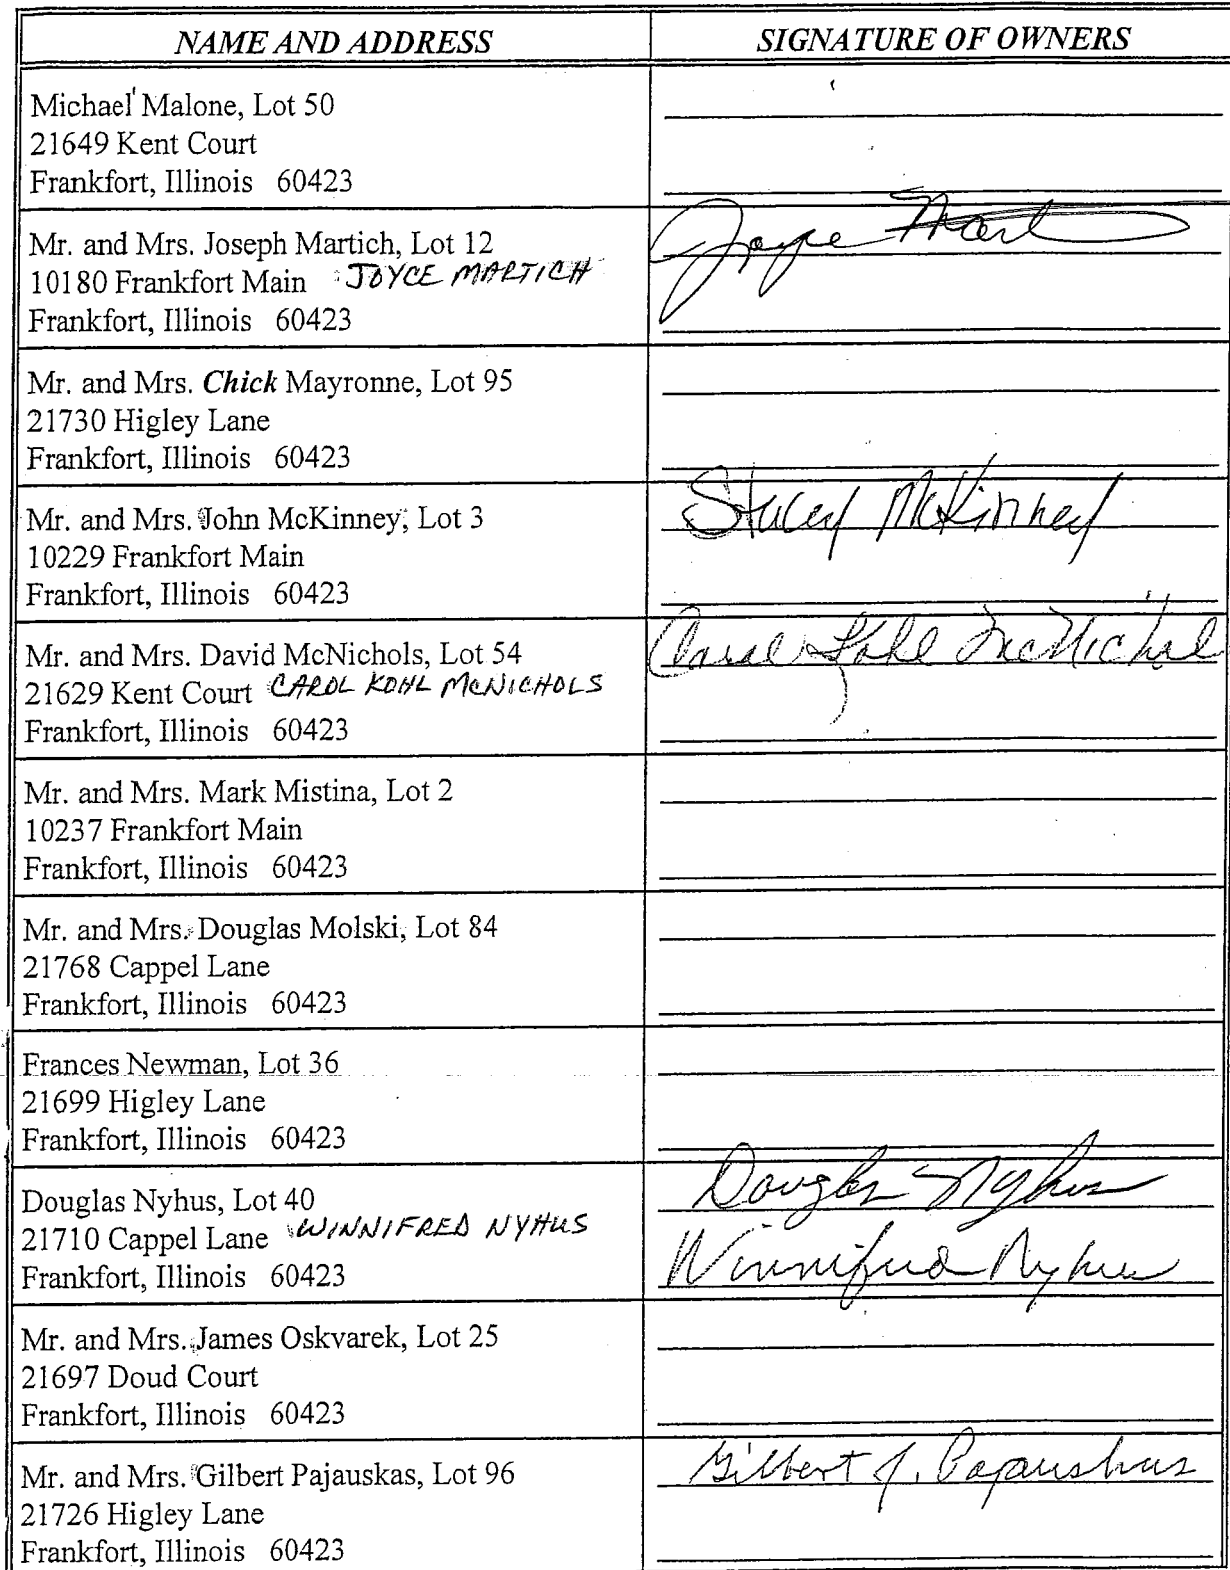 NAME AND ADDRESS
SIGNATURE OF OWNERS
Michael Malone, Lot 50
21649 Kent Court
Frankfort, Illinois 60423
Mr. and Mrs. Joseph Martich, Lot 12
10180 Frankfort Main JOYCE MARTICH
Frankfort, Illinois 60423
Joyce Mart
Mr. and Mrs. Chick Mayronne, Lot 95
21730 Higley Lane
Frankfort, Illinois 60423
Mr. and Mrs. John McKinney, Lot 3
10229 Frankfort Main
Frankfort, Illinois 60423
Stacey McKinney
Mr. and Mrs. David McNichols, Lot 54
21629 Kent Court CAROL KOHL McNICHOLS
Frankfort, Illinois 60423
Carol Kohl McNichol
Mr. and Mrs. Mark Mistina, Lot 2
10237 Frankfort Main
Frankfort, Illinois 60423
Mr. and Mrs. Douglas Molski, Lot 84
21768 Cappel Lane
Frankfort, Illinois 60423
Frances Newman, Lot 36
21699 Higley Lane
Frankfort, Illinois 60423
Douglas Nyhus, Lot 40
21710 Cappel Lane WINNIFRED NYHUS
Frankfort, Illinois 60423
Douglas Nyhus
Winnifred Nyhus
Mr. and Mrs. James Oskvarek, Lot 25
21697 Doud Court
Frankfort, Illinois 60423
Mr. and Mrs. Gilbert Pajauskas, Lot 96
21726 Higley Lane
Frankfort, Illinois 60423
Gilbert J. Pajauskas